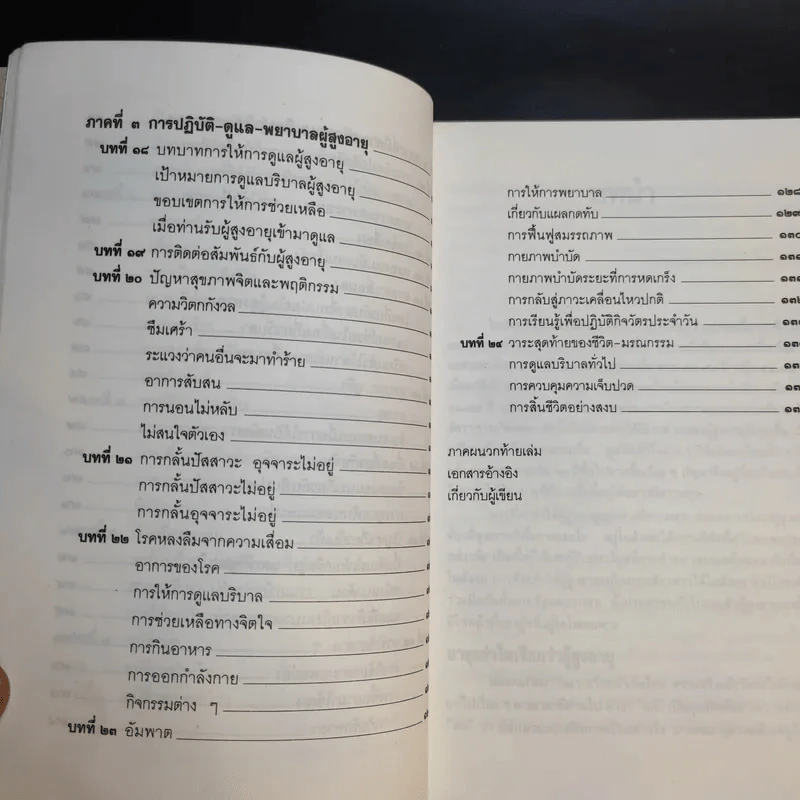 ภาคที่ ๓ การปฏิบัติ-ดูแล-พยาบาลผู้สูงอายุ
บทที่ ๑๘ บทบาทการให้การดูแลผู้สูงอายุ
เป้าหมายการดูแลบริบาลผู้สูงอายุ
ขอบเขตการให้การช่วยเหลือ
เมื่อท่านรับผู้สูงอายุเข้ามาดูแล
บทที่ ๑๙ การติดต่อสัมพันธ์กับผู้สูงอายุ
บทที่ ๒๐ ปัญหาสุขภาพจิตและพฤติกรรม
ความวิตกกังวล
ซึมเศร้า
ระแวงว่าคนอื่นจะมาทำร้าย
อาการสับสน
การนอนไม่หลับ
ไม่สนใจตัวเอง
บทที่ ๒๑ การกลั้นปัสสาวะ อุจจาระไม่อยู่
การกลั้นปัสสาวะไม่อยู่
การกลั้นอุจจาระไม่อยู่
บทที่ ๒๒ โรคหลงลืมจากความเสื่อม
อาการของโรค
การให้การดูแลบริบาล
การช่วยเหลือทางจิตใจ
การกินอาหาร
การออกกำลังกาย
กิจกรรมต่าง ๆ
บทที่ ๒๓ อัมพาต
การให้การพยาบาล ๑๒๘
เกี่ยวกับแผลกดทับ ๑๒๙
การฟื้นฟูสมรรถภาพ ๑๓๐
กายภาพบำบัด ๑๓๑
กายภาพบำบัดระยะที่การหดเกร็ง
การกลับสู่ภาวะเคลื่อนไหวปกติ
การเรียนรู้เพื่อปฏิบัติกิจวัตรประจำวัน
บทที่ ๒๔ วาระสุดท้ายของชีวิต-มรณกรรม
การดูแลบริบาลทั่วไป
การควบคุมความเจ็บปวด
การสิ้นชีวิตอย่างสงบ
ภาคผนวกท้ายเล่ม
เอกสารอ้างอิง
เกี่ยวกับผู้เขียน